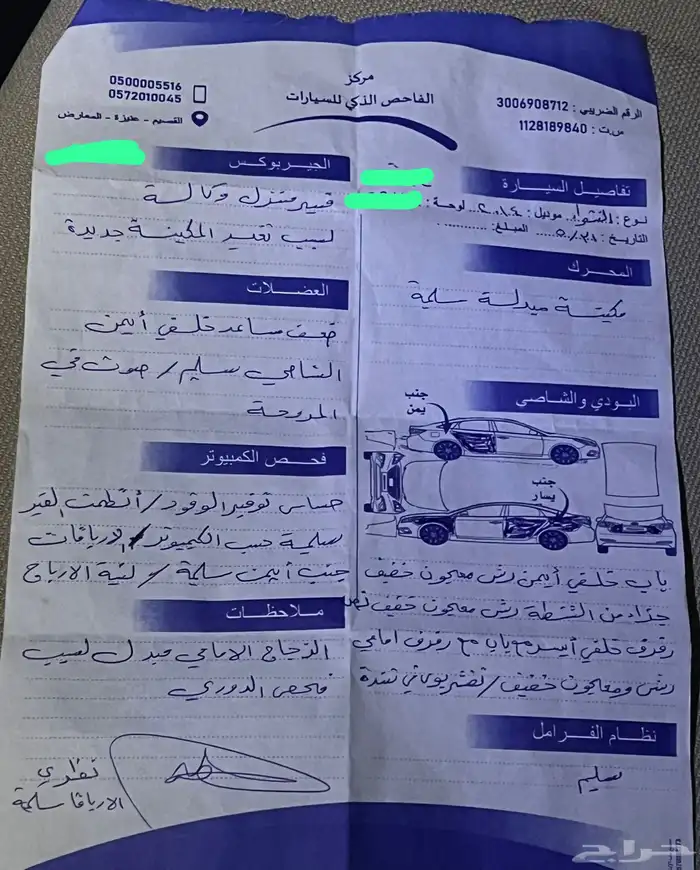 مركز
الفاحص الذكي للسيارات
0500005516
0572010045
القصيم - عنيزة - المعارض
الرقم الضريبي : 3006908712
س.ت : 1128189840
تفاصيل السيارة
نوع : النترا موديل : ٢٠١٤ لوحة :
التاريخ : ٥/٢١ المبلغ :
المحرك
مكينة مبدلة سليمة
البودي والشاصي
جنب
يمن
جنب
يسار
باب خلفي أيمن رش معجون خفيف
جزء من الشنطة رش معجون خفيف
رفرف خلفي أيسر مع باب مع رفرف امامي
رش ومعجون خفيف / تقشير بوية في تندة
نظام الفرامل
سليم
الجيربوكس
قير منزل وكالة
لسبب تغير المكينة جديدة
العضلات
ضعف مساعد خلفي أيمن
الشاصي سليم / صوت في
المروحة
فحص الكمبيوتر
حساس توفير الوقود / أنظمت القير
سليمة حسب الكمبيوتر / الارباقات
جنب أيمن سليمة / لتية الارباج
ملاحظات
الزجاج الامامي مبدل لسبب
فحص الدوري
نظري
الارباقا سليمة
حراج